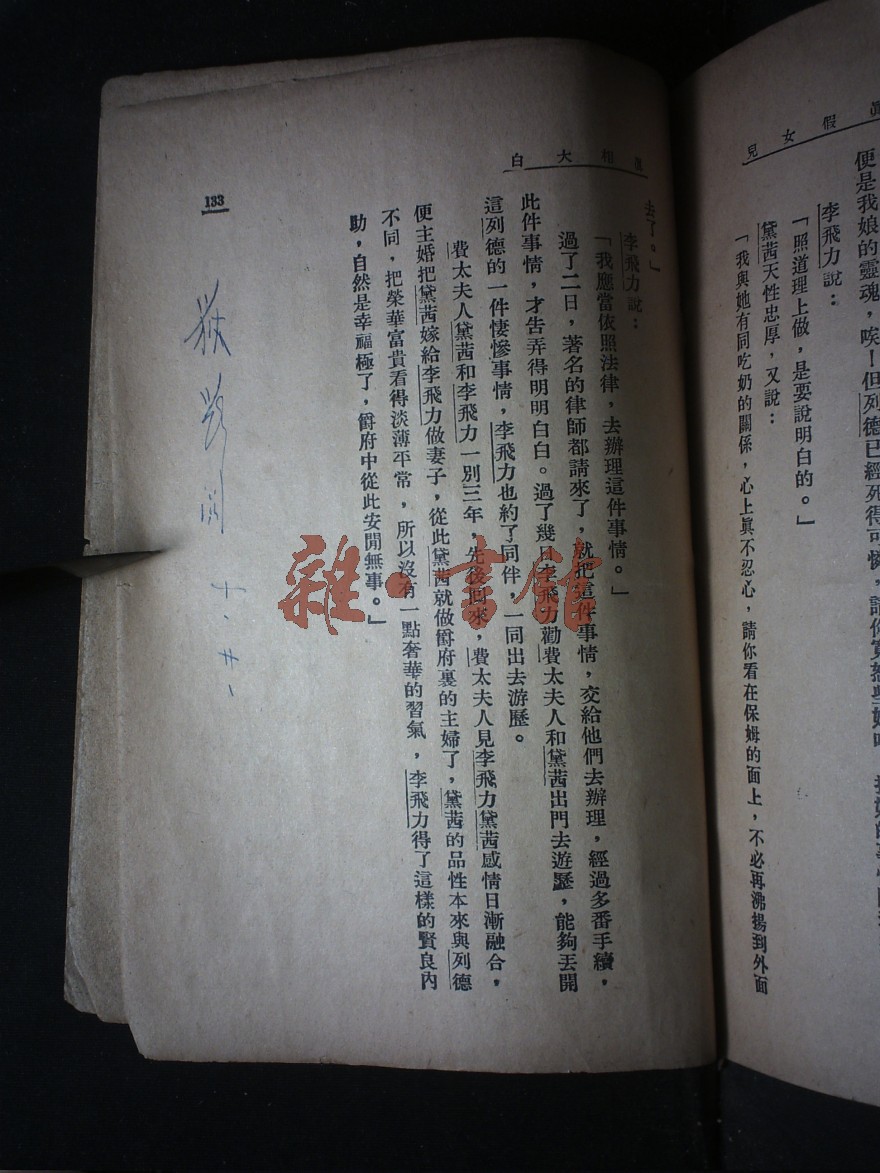 假女兒
便是我娘的靈魂，唉！但列德已經死得可憐，請你
李飛力說：
「照道理上做，是要說明白的。」
黛茜天性忠厚，又說：
「我與她有同吃奶的關係，心上眞不忍心，請你看在保姆的面上，不必再沸揚到外面
相大白
去了。」
李飛力說：
「我應當依照法律，去辦理這件事情。」
過了二日，著名的律師都請來了，就把這件事情，交給他們去辦理，經過多番手續，
此件事情，才告弄得明明白白。過了幾日李飛力勸費太夫人和黛茜出門去遊歷，能夠丟開
這列德的一件悽慘事情，李飛力也約了同伴，一同出去游歷。
費太夫人黛茜和李飛力一別三年，先後回來，費太夫人見李飛力黛茜感情日漸融合，
便主婚把黛茜嫁給李飛力做妻子，從此黛茜就做爵府裏的主婦了，黛茜的品性本來與列德
不同，把榮華富貴看得淡薄平常，所以沒有一點奢華的習氣，李飛力得了這樣的賢良內
助，自然是幸福極了，爵府中從此安閒無事。」
133
十、廿、
雜·書館